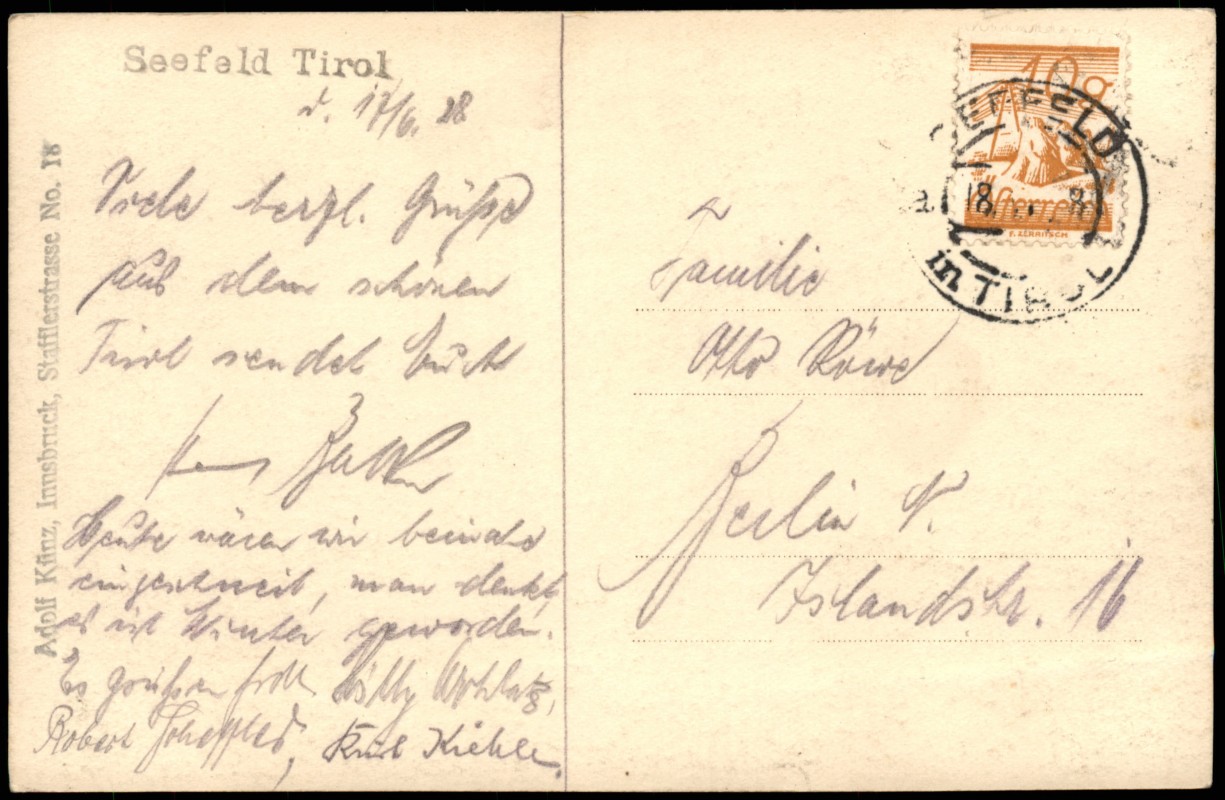 Seefeld Tirol
d. 17/6. 28
Viele herzl. Grüße
aus dem schönen
Tirol sendet Euch
Heute wären wir beinahe
eingeschneit, man denkt,
es ist Winter geworden.
Es grüßen frdl. Willy
Robert Kurt Kiehle.
Adolf Künz, Innsbruck, Stafflerstrasse No. 18
10g
Österreich
F. ZERRITSCH
SEEFELD
18. 28
in TIROL
Familie
Otto Röwe
Berlin N.
Islandstr. 16